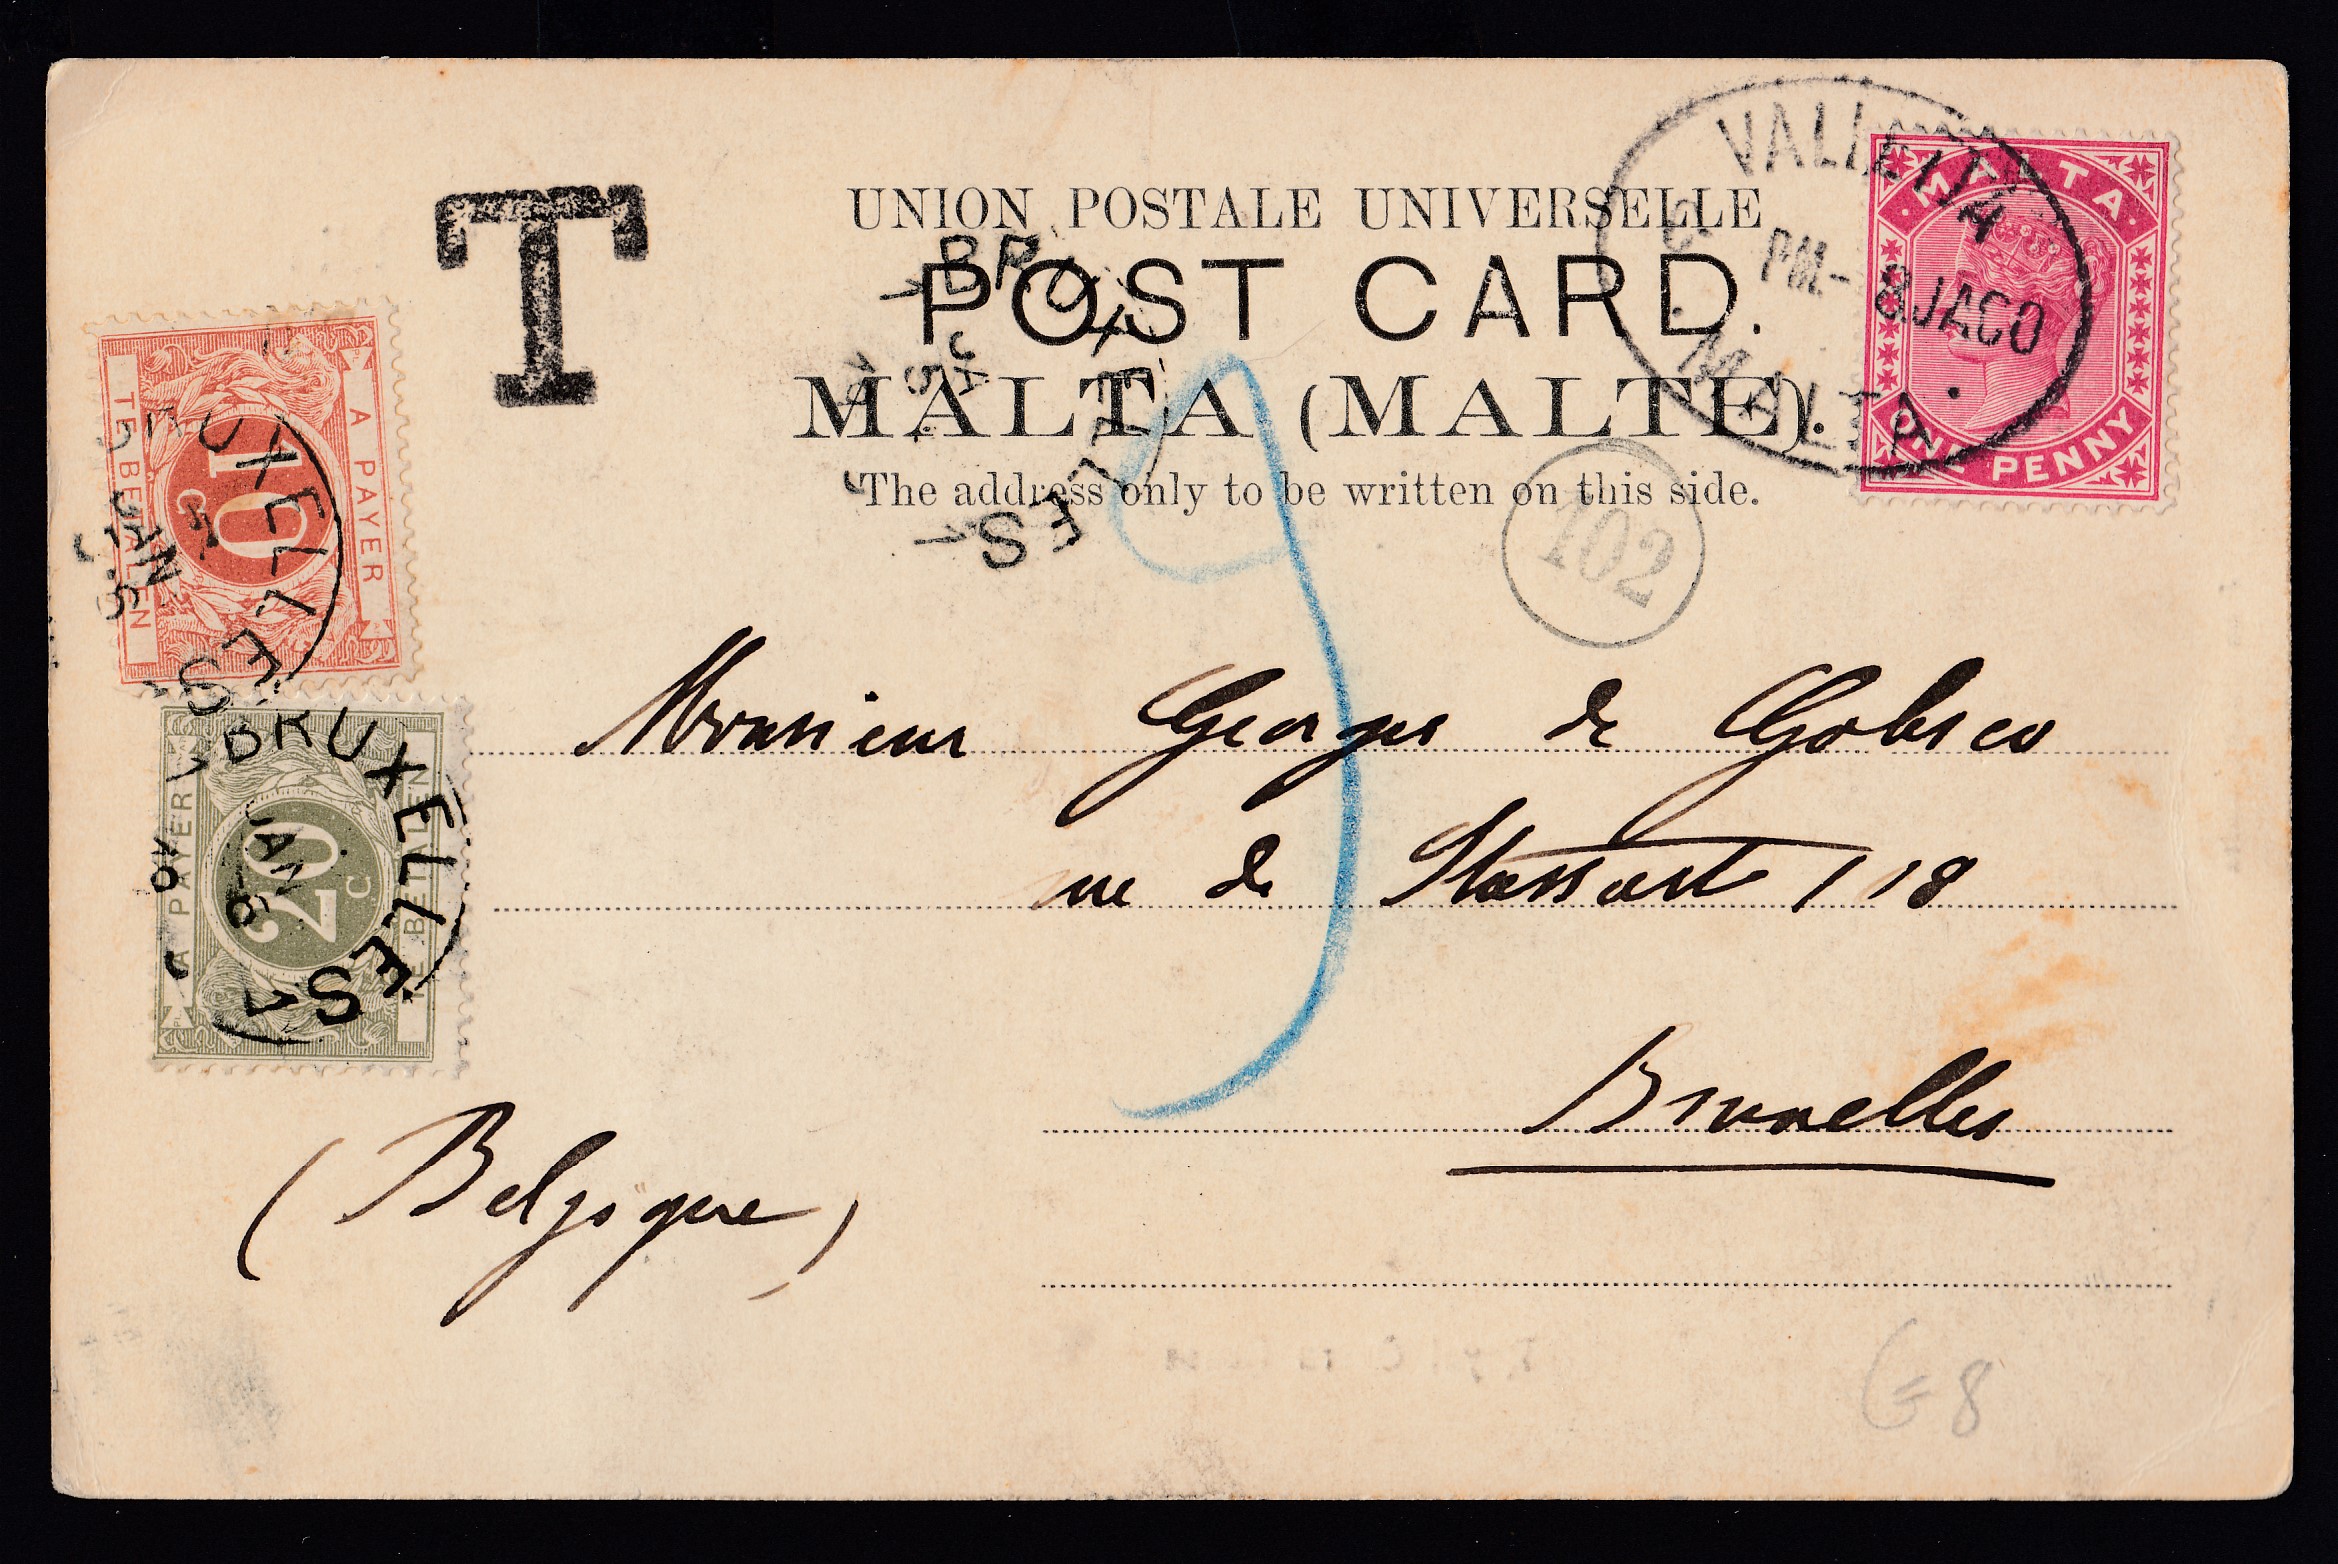 UNION POSTALE UNIVERSELLE
POST CARD.
MALTA (MALTE).
The address only to be written on this side.
T
VALLETTA
PM - 8 JA 00
MALTA
MALTA
ONE PENNY
BRUXELLES
JA
5
102
9
A PAYER
10 c
TE BETALEN
BRUXELLES
JAN
A PAYER
20 c
TE BETALEN
BRUXELLES
JAN
Monsieur Georges de
rue de Stassart 118
Bruxelles
(Belgique)
8